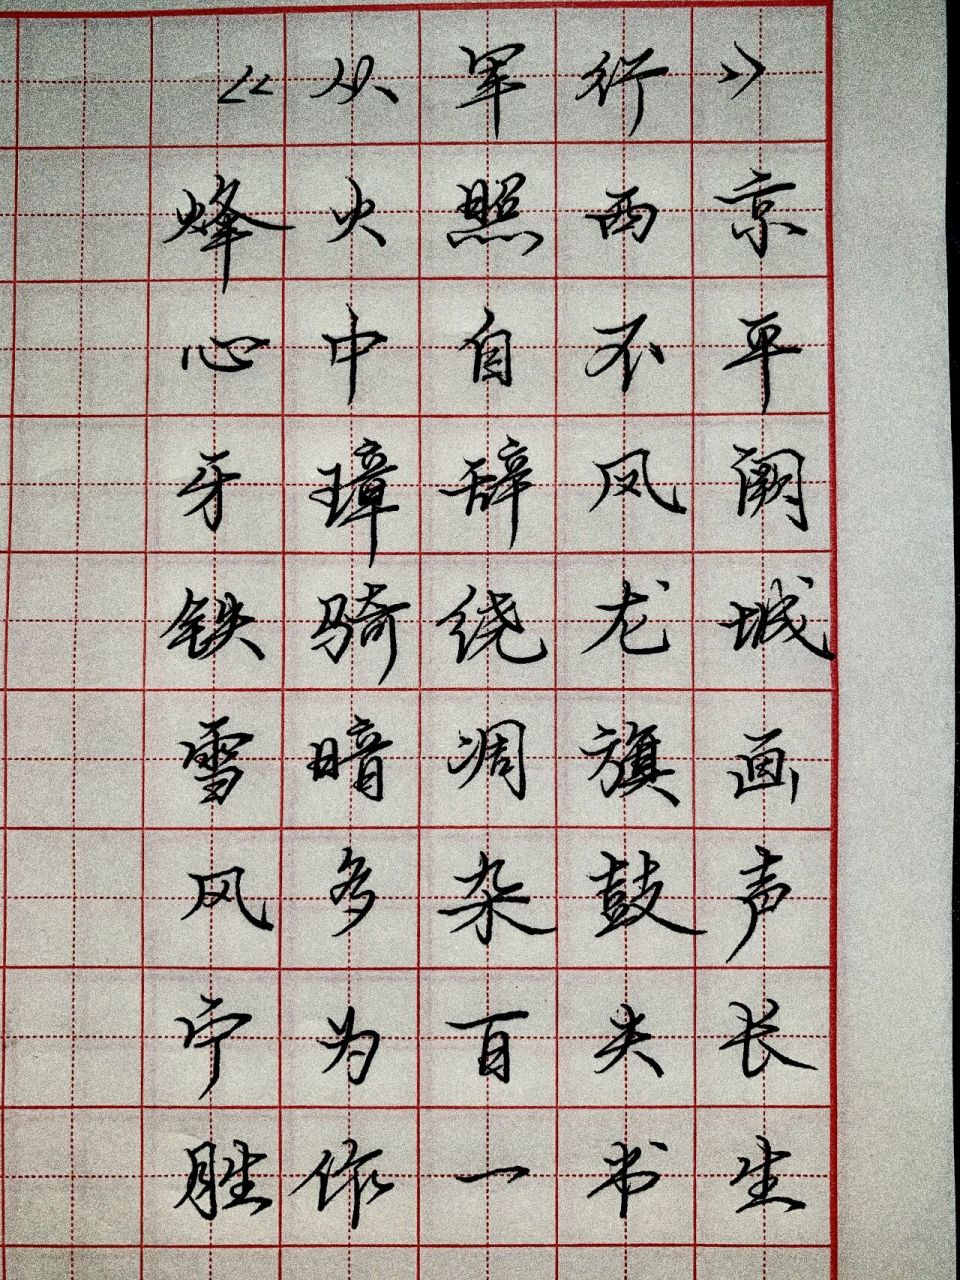 《从军行》
烽火照西京
心中自不平
牙璋辞凤阙
铁骑绕龙城
雪暗凋旗画
风多杂鼓声
宁为百夫长
胜作一书生